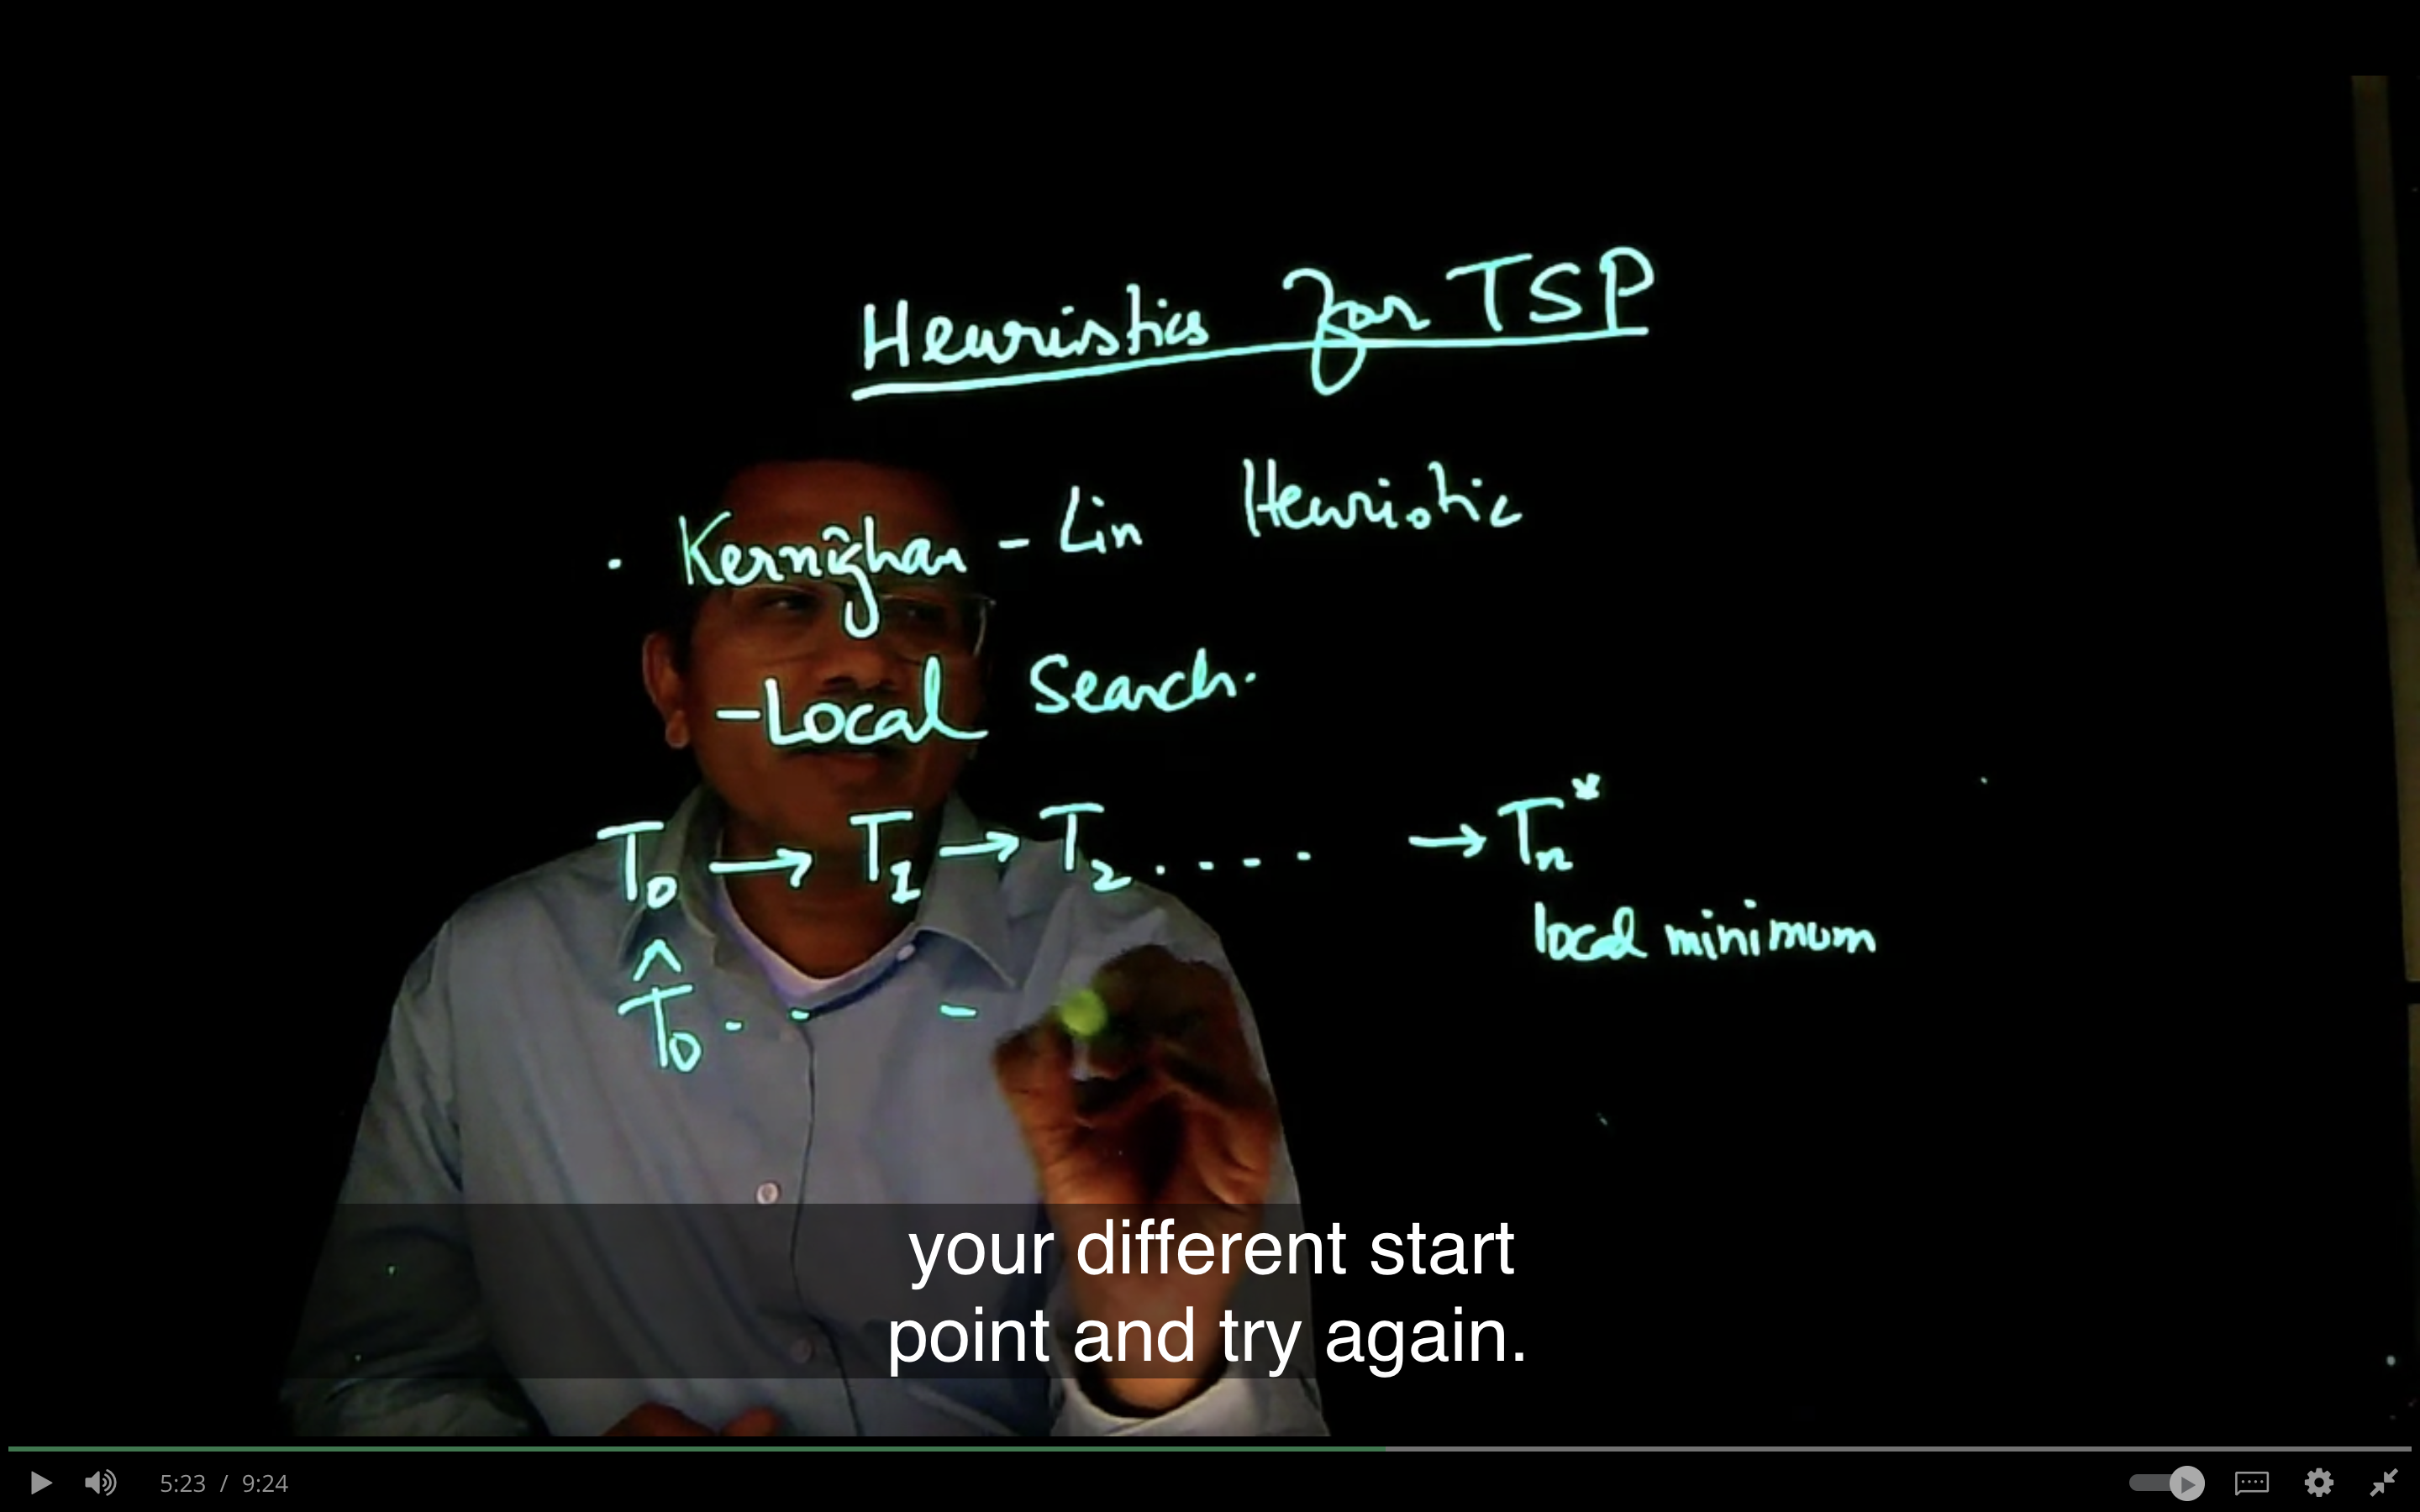 Heuristics for TSP
· Kernighan - Lin Heuristic
- Local Search.
T₀ → T₁ → T₂ . . . . → Tₙ*
local minimum
T̂₀ - - -
your different start
point and try again.
5:23 / 9:24